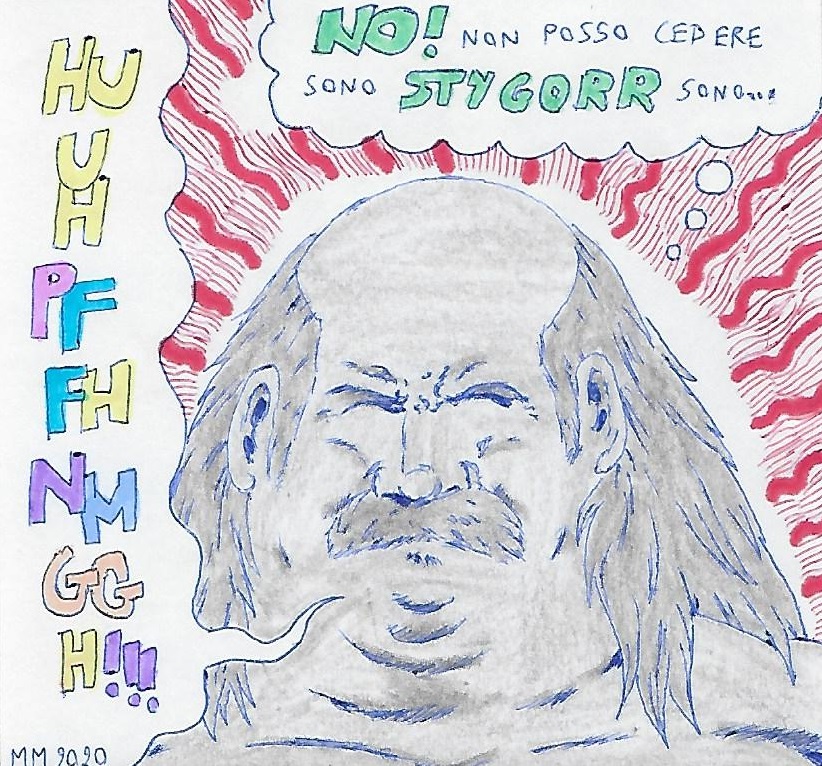 NO! NON POSSO CEDERE
SONO STYGORR SONO...
HU
U
H
PF
FH
NM
GG
H!!!
MM 2020